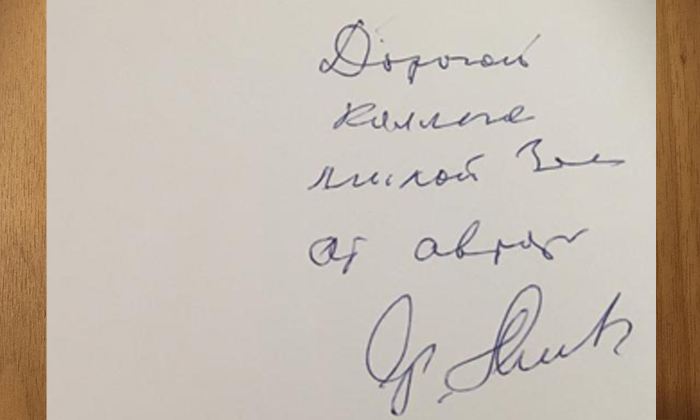 Дорогой
коллеге
милой Зое
от автора